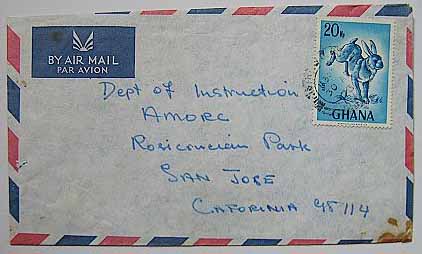 BY AIR MAIL
PAR AVION
20Np
GHANA
Dept of Instruction
AMORC
Rosicrucian Park
SAN JOSE
CAFORINIA 95114